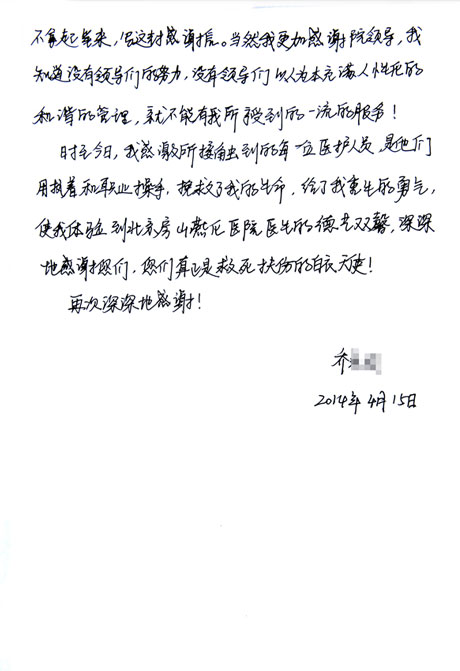 不拿起笔来,写这封感谢信。当然我更加感谢院领导,我
知道没有领导们的努力,没有领导们以人为本充满人性化的
和谐的管理,就不能有我所受到的一流的服务!
时至今日,我感激所接触到的每一位医护人员,是他们
用执着和职业操手,挽救了我的生命,给了我重生的勇气,
使我体验到北京房山燕化医院医生的德艺双馨,深深
地感谢您们,您们真正是救死扶伤的白衣天使!
再次深深地感谢!
乔
2014年4月15日